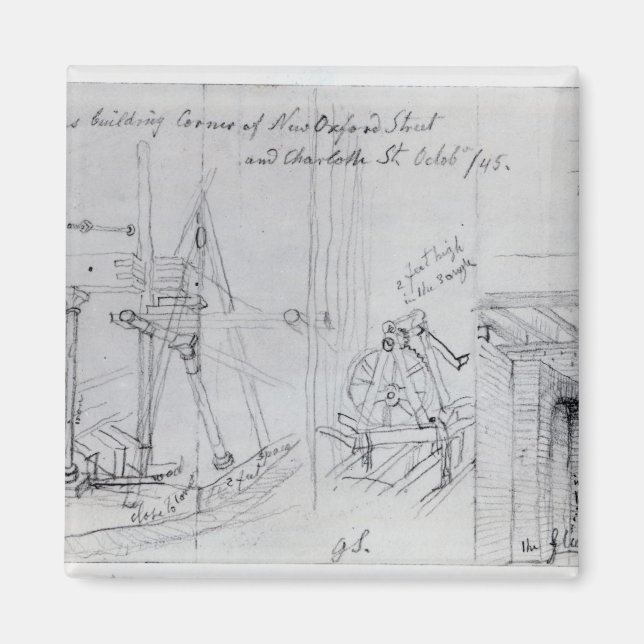 s building Corner of New Oxford Street
and Charlotte St. Octobr /45.
2 feet high
in the
iron
wood
close to
2 feet space
G.S.
the